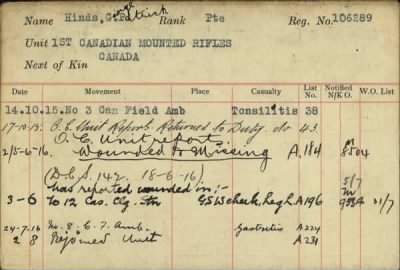 Name Hinds, G. Patrick Rank Pte Reg. No. 106289
Unit 1ST CANADIAN MOUNTED RIFLES
Next of Kin CANADA
Date Movement Place Casualty List No. Notified N/K O. W.O. List
14.10.15. No 3 Can Field Amb Tonsilitis 38
17-10-15. O.C. Unit Reports Returned to Duty do 43.
O.C. Unit reports
2/5-6-16. Wounded & Missing A.184
(D.C.S. 142. 18-6-16)
has reported wounded in:-
3-6 to 12 Cas. Clg. Stn GSW cheek, leg R A196
24-7-16 No. 8. C. F. Amb. Gastritis A224
2 8 Rejoined Unit A231